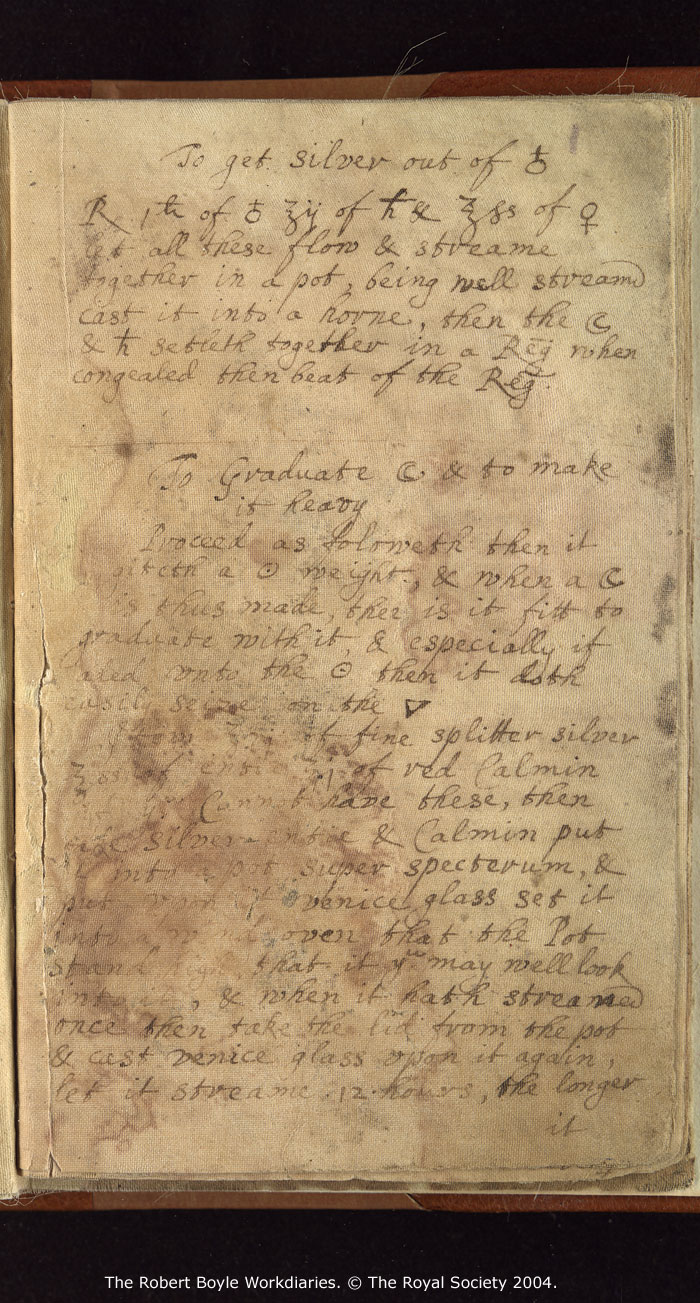 To get silver out of ♁
℞ 1 ℔ of ♁ ℥ij of ♄ & ℥ss of ♀
let all these flow & streame
together in a pot, being well streamd
cast it into a horne, then the ☾
& ♄ setleth together in a Reg̅ when
congealed then beat of the Reg̅.
To Graduate ☾ & to make
it heavy
Proceed as foloweth then it
giteth a ☉ weight, & when a ☾
is thus made, then is it fitt to
graduate with it, & especially if
aded vnto the ☉ then it doth
easily seize on the
of fine splitter silver
of red Calmin
Cannot have these, then
take silver & Calmin put
it into a pot super specterum, &
put vpon it venice glass set it
into a wind oven that the Pot
stand high that it yu may well look
into it, & when it hath streamed
once then take the lid from the pot
& cast venice glass vpon it again,
let it streame .12. hours, the longer
it
The Robert Boyle Workdiaries. © The Royal Society 2004.